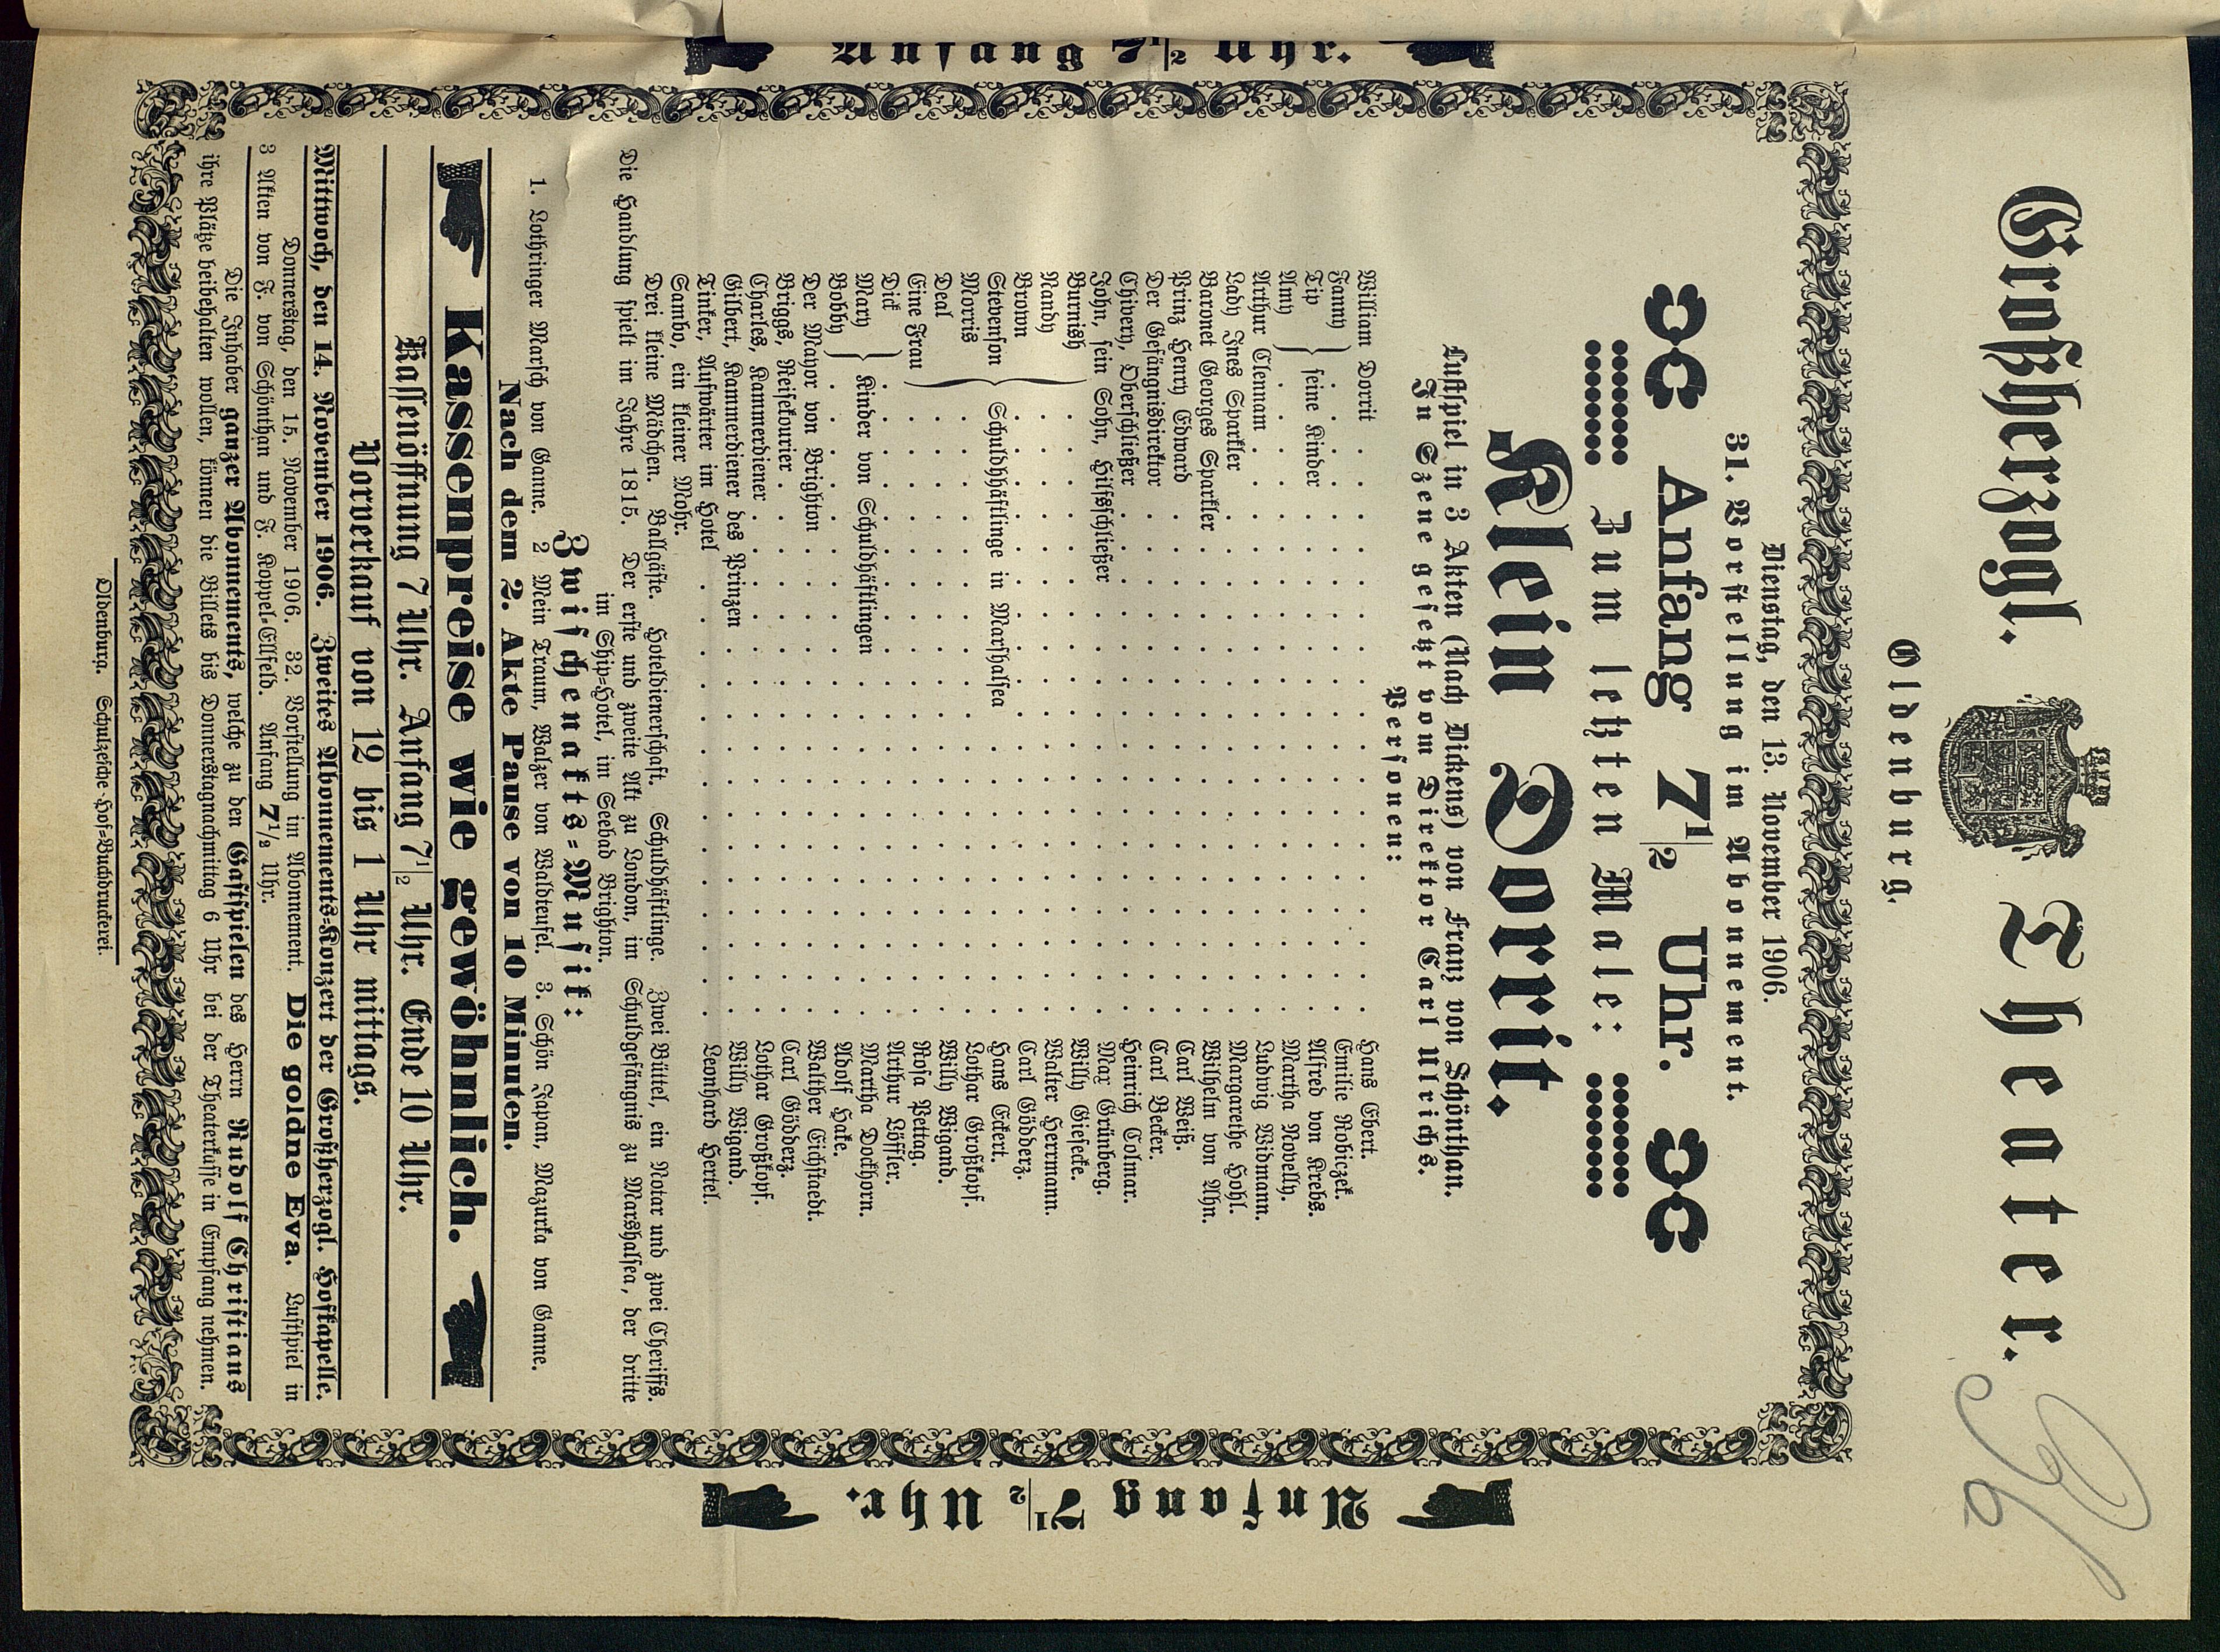 Großherzogl. Theater.
Oldenburg.
Dienstag, den 13. November 1906.
31. Vorstellung im Abonnement.
Anfang 7 1/2 Uhr.
Zum letzten Male:
Klein Dorrit.
Lustspiel in 3 Akten (Nach Dickens) von Franz von Schönthan.
In Szene gesetzt vom Direktor Carl Ulrichs.
Personen:
William Dorrit . . . Hans Ebert.
Fanny } . . . Emilie Robiczek.
Tip } seine Kinder . . . Alfred von Krebs.
Amy } . . . Martha Novelly.
Arthur Clennam . . . Ludwig Widmann.
Lady Ines Sparkler . . . Margarethe Hohl.
Baronet Georges Sparkler . . . Wilhelm von Ahn.
Prinz Henry Edward . . . Carl Weiß.
Der Gefängnisdirektor . . . Carl Becker.
Chivery, Oberschließer . . . Heinrich Colmar.
John, sein Sohn, Hilfsschließer . . . Max Grünberg.
Burnish } . . . Willy Giesecke.
Nandy } . . . Walter Herrmann.
Brown } . . . Carl Gödderz.
Stevenson } Schuldhäftlinge in Marshalsea . . . Hans Eckert.
Morris } . . . Lothar Großkopf.
Deal } . . . Willy Wigand.
Eine Frau } . . . Rosa Petiog.
Dick } . . . Arthur Löffler.
Mary } Kinder von Schuldhäftlingen . . . Martha Dockhorn.
Bobby } . . . Adolf Hake.
Der Mayor von Brighton . . . Walther Eichstaedt.
Briggs, Reisekourier . . . Carl Gödderz.
Charles, Kammerdiener . . . Lothar Großkopf.
Gilbert, Kammerdiener des Prinzen . . . Willy Wigand.
Tinker, Aufwärter im Hotel . . . Leonhard Hertel.
Sambo, ein kleiner Mohr.
Drei kleine Mädchen. Ballgäste. Hoteldienerschaft. Schuldhäftlinge. Zwei Büttel, ein Notar und zwei Cheriffs.
Die Handlung spielt im Jahre 1815. Der erste und zweite Akt zu London, im Schuldgefängnis zu Marshalsea, der dritte
im Ship-Hotel, im Seebad Brighton.
Zwischenakts-Musik:
1. Lothringer Marsch von Ganne. 2 Mein Traum, Walzer von Waldteufel. 3. Schön Japan, Mazurka von Ganne.
Nach dem 2. Akte Pause von 10 Minuten.
Kassenpreise wie gewöhnlich.
Kassenöffnung 7 Uhr. Anfang 7 1/2 Uhr. Ende 10 Uhr.
Vorverkauf von 12 bis 1 Uhr mittags.
Mittwoch, den 14. November 1906. Zweites Abonnements-Konzert der Großherzogl. Hofkapelle.
Donnerstag, den 15. November 1906. 32. Vorstellung im Abonnement. Die goldne Eva. Lustspiel in
3 Akten von F. von Schönthan und F. Koppel-Ellfeld. Anfang 7 1/2 Uhr.
Die Inhaber ganzer Abonnements, welche zu den Gastspielen des Herrn Rudolf Christians
ihre Plätze beibehalten wollen, können die Billets bis Donnerstagnachmittag 6 Uhr bei der Theaterkasse in Empfang nehmen.
Oldenburg. Schulzesche Hof-Buchdruckerei.
Anfang 7 1/2 Uhr.
Anfang 7 1/2 Uhr.